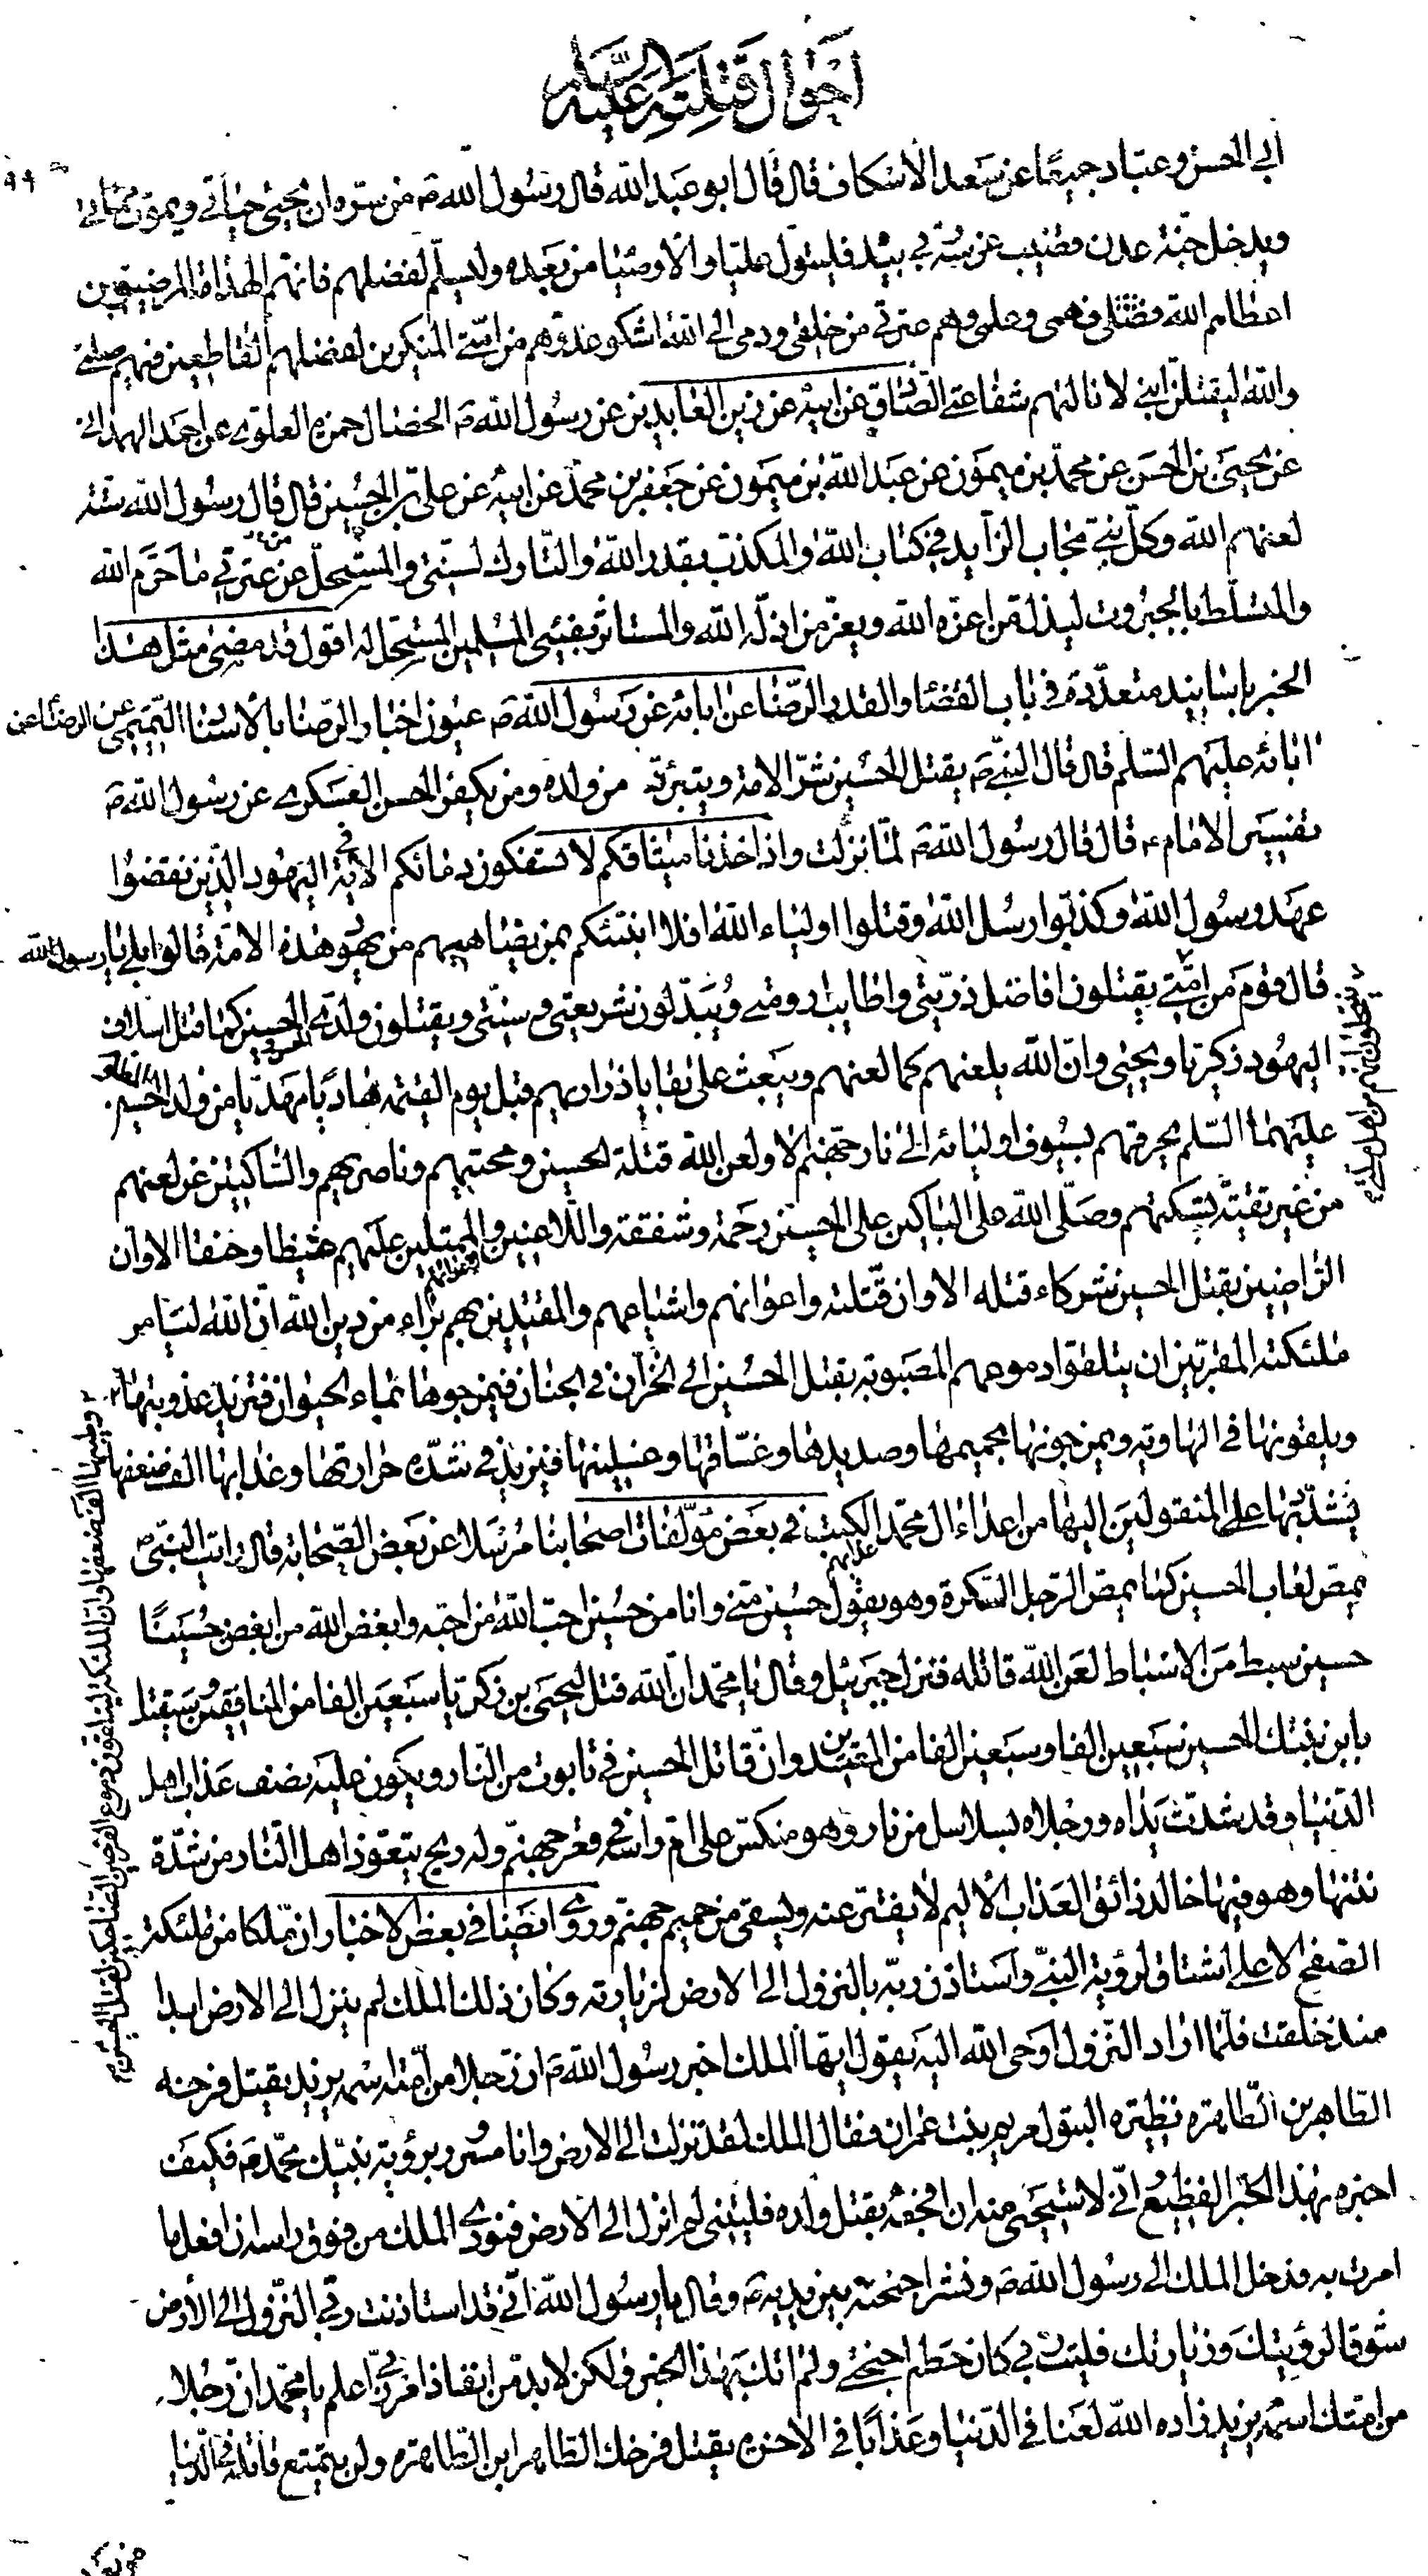 احوال قتلته عليه السلام
ابي الحسن و عباد جميعا عن سعد الاسكاف قال قال ابو عبد الله قال رسول الله ص من سره ان يحيى حياتي و يموت مماتي
و يدخل جنة عدن قضيب غرسه ربي بيده فليتول عليا و الاوصياء من بعده و ليسلم لفضلهم فانهم الهداة المرضيون
اعطاهم الله فضلي فهمي و علمي و هم عترتي من خلقي و دمي الى الله اشكو عدوهم من امتي المنكرين لفضلهم القاطعين فيهم صلتي
والله ليقتلن ابني لا نالتهم شفاعتي الصادق عن ابيه عن زين العابدين عن رسول الله ص الخصال حمزة العلوي عن احمد الهمداني
عن يحيى بن الحسن عن محمد بن ميمون عن عبد الله بن ميمون عن جعفر بن محمد عن ابيه عن علي بن الحسين قال قال رسول الله ستة
لعنهم الله و كل نبي مجاب الزايد في كتاب الله و المكذب بقدر الله و التارك لسنتي و المستحل من عترتي ما حرم الله
و المتسلط بالجبروت ليذل من اعزه الله و يعز من اذله الله و المستاثر بفيئي المسلمين المستحل له اقول قد مضى مثل هذا
الخبر باسانيد متعددة في باب القضاء و القدر الرضا عن ابائه عن رسول الله ص عيون اخبار الرضا بالاسناد التميمي عن الرضا عن
ابائه عليهم السلم قال قال النبي ص يقتل الحسين شر الامة و يتبرء من ولده و من يكفر الحسن العسكري عن رسول الله ص
تفسير الامام ع قال قال رسول الله ص لما نزلت و اذ اخذنا ميثاقكم لا تسفكون دمائكم الاية في اليهود الذين نقضوا
عهد رسول الله و كذبوا رسل الله و قتلوا اولياء الله افلا انبئكم بمن يضاهيهم من يهود هذه الامة قالوا بلى يا رسول الله
قال قوم من امتي يقتلون افاضل ذريتي و اطايب ارومتي و يبدلون شريعتي و سنتي و يقتلون ولدي الحسن و الحسين كما قتل اسلاف
اليهود زكريا و يحيى و ان الله يلعنهم كما لعنهم و يبعث على بقايا ذراريهم قبل يوم القيمة هاديا مهديا من ولد الحسين المظلوم
عليهما السلم يحرقهم بسيوف اوليائه الى نار جهنم الا و لعن الله قتلة الحسين و محبيهم و ناصريهم و الساكتين عن لعنهم
من غير تقية يسكتهم و صلى الله على الباكين على الحسين رحمة و شفقة و اللاعنين لاعدائهم و الممتلين عليهم غيظا و حنقا الا و ان
الراضين بقتل الحسين شركاء قتله الا و ان قتلته و اعوانهم و اشياعهم و المقتدين بهم براء من دين الله ان الله ليامر
ملئكته المقربين ان يتلقوا دموعهم المصبوبة بقتل الحسين الى الخزان في الجنان فيمزجوها بماء الحيوان فتزيد عذوبتها
و يلقونها في الهاوية و يمزجونها بحميمها و صديدها و غساقها و غسلينها فتزيد في شدة حرارتها و عذابها الف ضعفها
تشدد بها على المنقولين اليها من اعداء ال محمد عذابهم في بعض مؤلفات اصحابنا مرسلا عن بعض الصحابة قال رايت النبي ص
يمص لعاب الحسين كما يمص الرجل السكرة و هو يقول حسين مني و انا من حسين احب الله من احبه و ابغض الله من ابغض حسينا
حسين سبط من الاسباط لعن الله قاتله فنزل جبرئيل و قال يا محمد ان الله قتل بيحيى بن زكريا سبعين الفا من المنافقين و سيقتل
بابن بنتك الحسين سبعين الفا و سبعين الفا من المعتدين و ان قاتل الحسين في تابوت من النار و يكون عليه نصف عذاب اهل
الدنيا و قد شدت يداه و رجلاه بسلاسل من نار و هو منكس على ام راسه في قعر جهنم و له ريح يتعوذ اهل النار من شدة
نتنها و هو فيها خالد ذائق العذاب الاليم لا يفتر عنه و يسقى من حميم جهنم و روي ايضا في بعض الاخبار ان ملكا من ملئكة
الصفح الاعلى اشتاق لرؤية النبي و استاذن ربه بالنزول الى الارض لزيارته و كان ذلك الملك لم ينزل الى الارض ابدا
منذ خلقت فلما اراد النزول اوحى الله اليه يقول ايها الملك اخبر رسول الله ص ان رجلا من امته اسمه يزيد يقتل فرخه
الطاهر بن الطاهرة نظيرة البتول مريم بنت عمران فقال الملك لقد نزلت الى الارض و انا مسرور برؤية نبيك محمد ص فكيف
اخبره بهذا الخبر الفظيع اني لاستحيي منه ان افجعه بقتل ولده فليتني لم انزل الى الارض فنودي الملك من فوق راسه ان افعل ما
امرت به فدخل الملك الى رسول الله ص و نشر اجنحته بين يديه و قال يا رسول الله اني قد استاذنت ربي النزول الى الارض
شوقا لرؤيتك و زيارتك فليت ربي كان حطم اجنحتي و لم اتك بهذا الخبر و لكن لا بد من انفاذ امر ربي اعلم يا محمد ان رجلا
من امتك اسمه يزيد زاده الله لعنا في الدنيا و عذابا في الاخرة يقتل فرخك الطاهر ابن الطاهرة و لن يتمتع قاتله في الدنيا
ينتحلون انهم من اهل ملتي
و طيبها الف ضعفها و ان الملئكة ليتلقون دموع الفرحين الضاحكين لقتل الحسين
من بعده